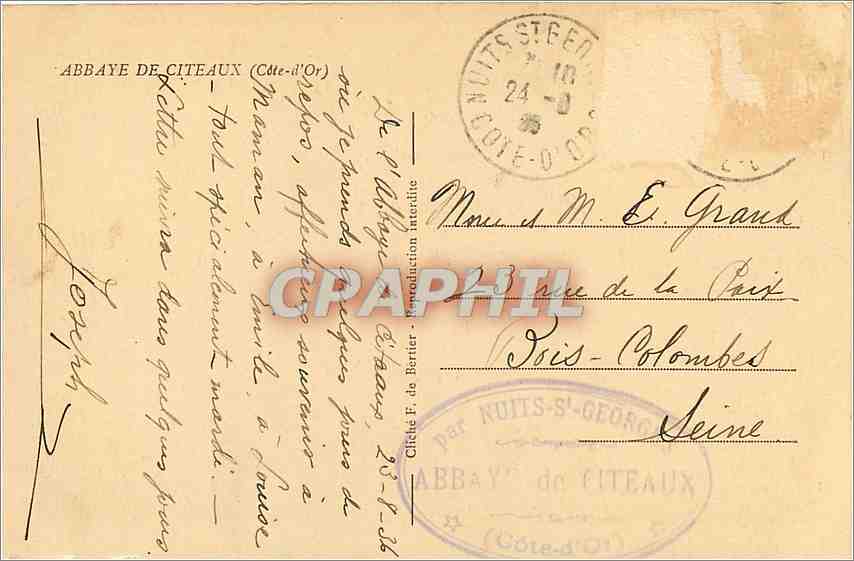 ABBAYE DE CITEAUX (Côte-d'Or)
De l'Abbaye de Citeaux, 23-8-36
où je prends quelques jours de
repos, affectueux souvenir à
Maman, à Emile, à Louise
- tout spécialement mardi. -
Lettre suivra dans quelques jours.
Joseph
Cliché F. de Bertier - Reproduction interdite
NUITS ST GEO
24 -8
36
COTE-D'OR
Mme et M. E. Grand
23 rue de la Paix
Bois-Colombes
Seine.
par NUITS-St-GEORGES
ABBAYE de CITEAUX
(Côte-d'Or)
CPARPHIL